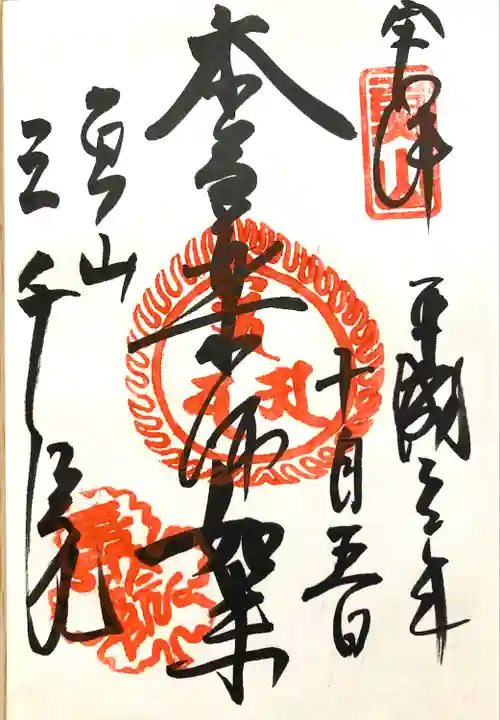 奉拝
平成三年
十月五日
本尊薬師如来
魚山
三千院